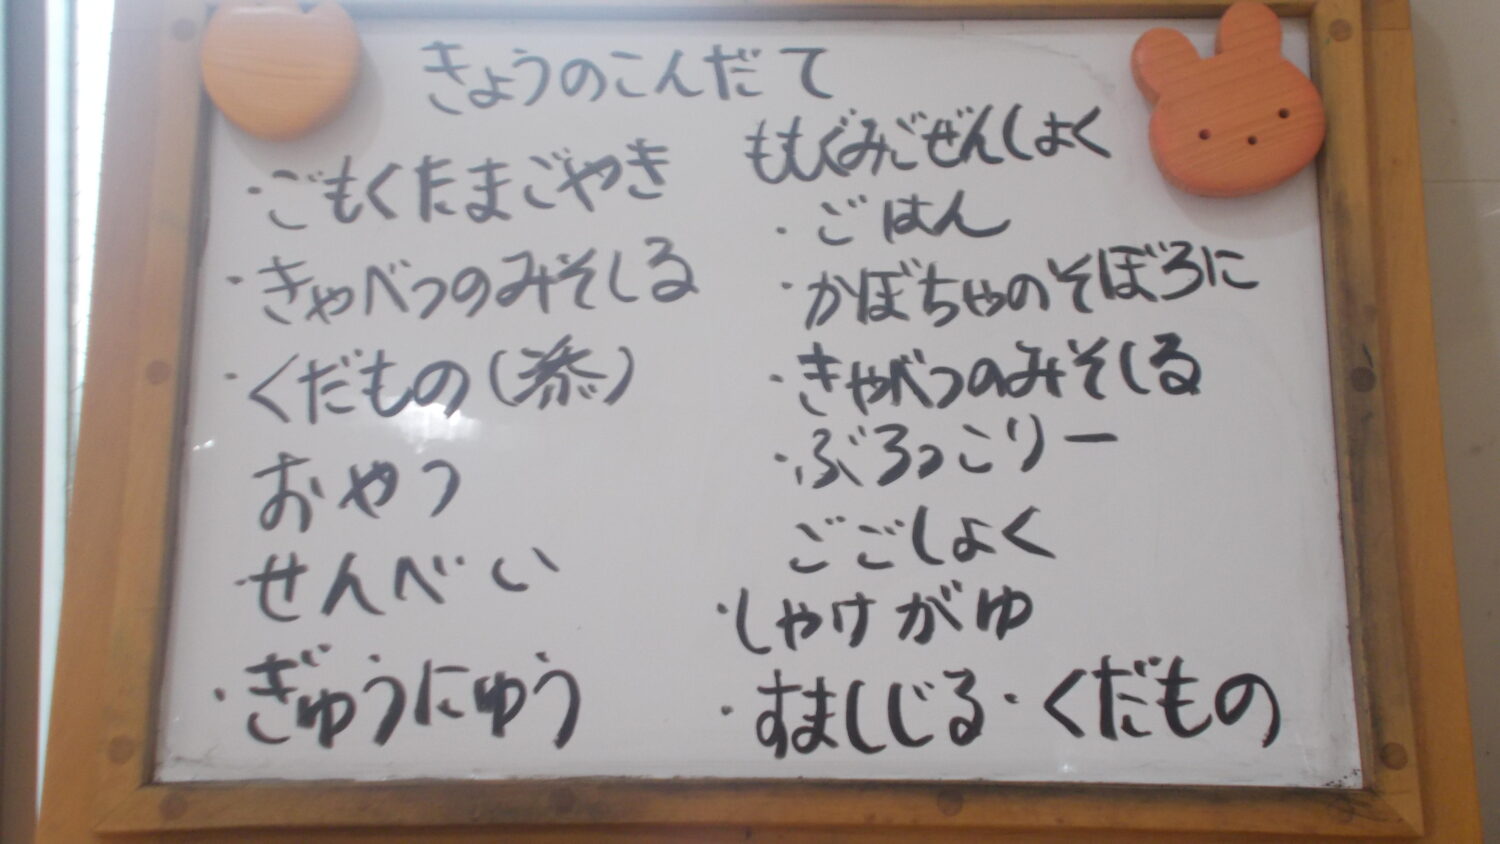 きょうのこんだて
・ごもくたまごやき
・きゃべつのみそしる
・くだもの()
おやつ
・せんべい
・ぎゅうにゅう
ももぐみごぜんしょく
・ごはん
・かぼちゃのそぼろに
・きゃべつのみそしる
・ぶろっこりー
ごごしょく
・しゃけがゆ
・すましじる・くだもの